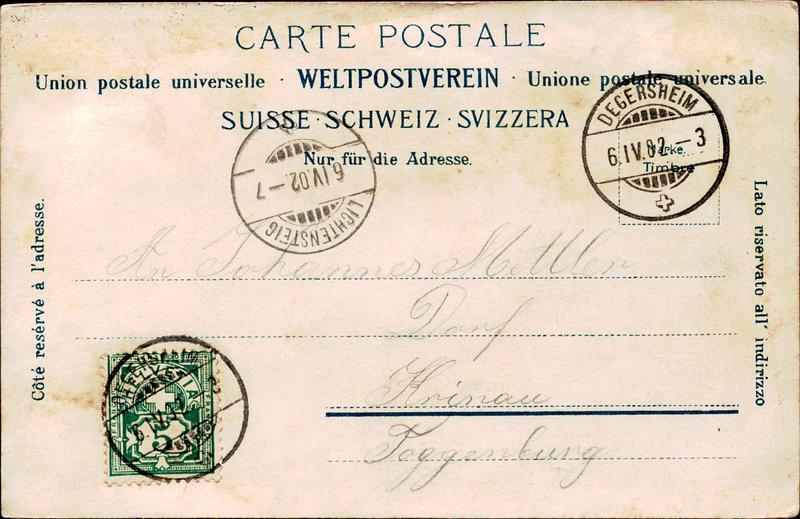 CARTE POSTALE
Union postale universelle · WELTPOSTVEREIN · Unione postale universale
SUISSE · SCHWEIZ · SVIZZERA
Nur für die Adresse.
DEGERSHEIM
6.IV.02.–3
Marke.
Timbre
6.IV.02.–7
LICHTENSTEIG
Côté resérvé à l'adresse.
Lato riservato all' indirizzo
An Johannes Mettler
Dorf
Krinau
Toggenburg
HELVETIA
5